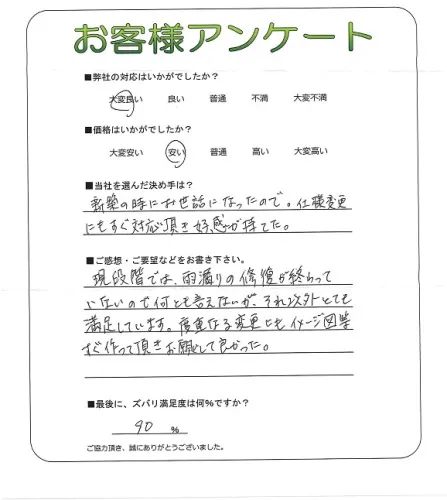 お客様アンケート
■弊社の対応はいかがでしたか?
大変良い 良い 普通 不満 大変不満
■価格はいかがでしたか?
大変安い 安い 普通 高い 大変高い
■当社を選んだ決め手は?
新築の時にお世話になったので。仕様変更
にもすぐ対応頂き好感が持てた。
■ご感想・ご要望などをお書き下さい。
現段階では、雨漏りの修復が終わって
いないので何とも言えないが、それ以外とても
満足しています。度重なる変更にもイメージ図等
すぐ作って頂きお願いして良かった。
■最後に、ズバリ満足度は何%ですか?
90 %
ご協力頂き、誠にありがとうございました。